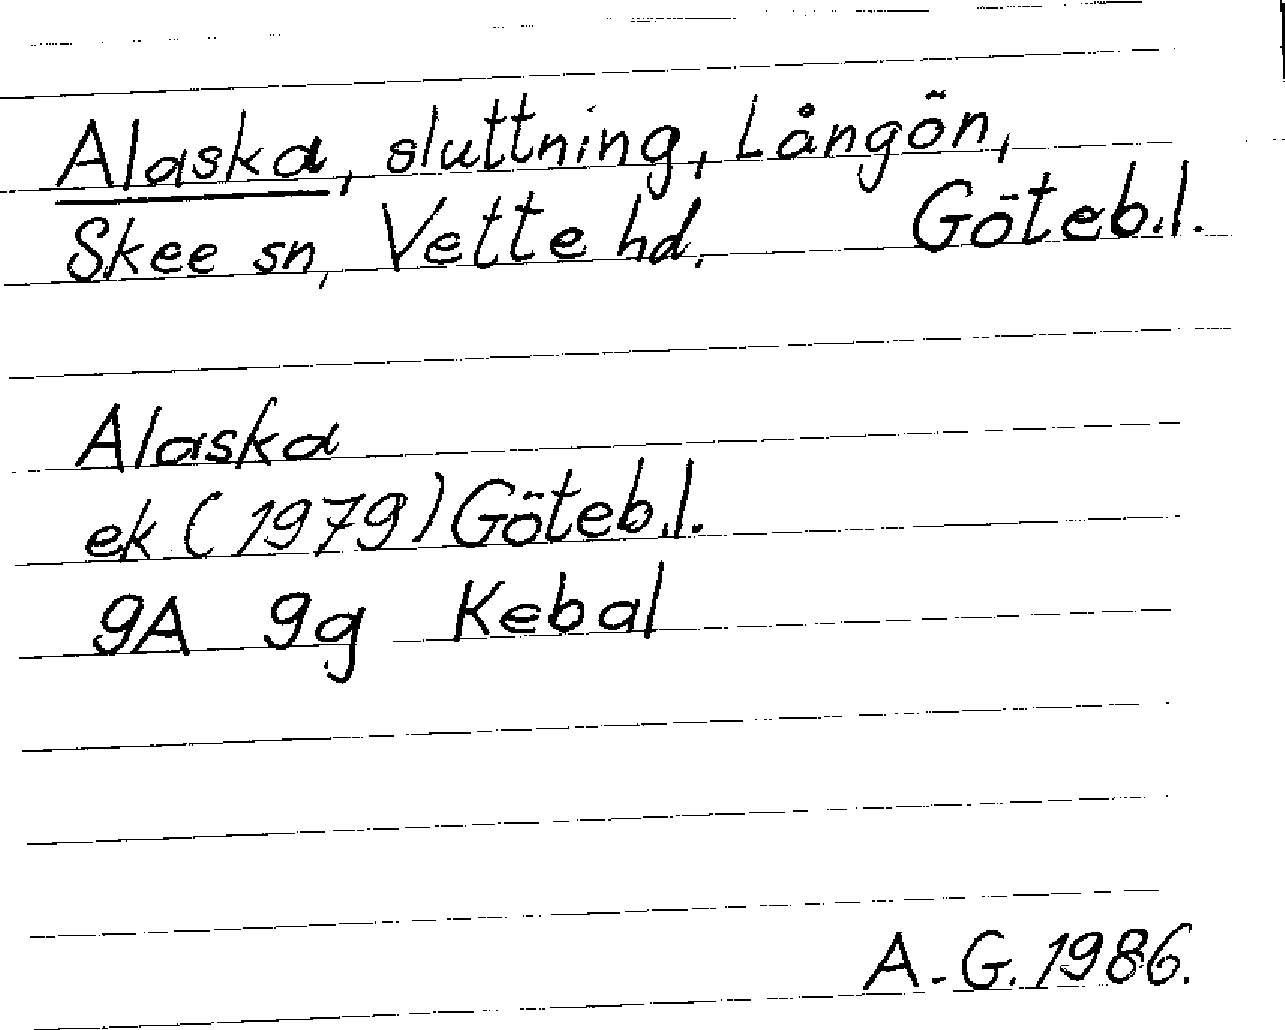 Alaska, sluttning, Långön,
Skee sn, Vette hd. Göteb.l.
Alaska
ek (1979) Göteb.l.
9A 9g Kebal
A-G. 1986.